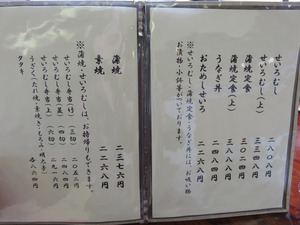 せいろむし 二二八〇八円
せいろむし(上) 三三四八円
蒲焼定食 三〇二四円
蒲焼定食(上) 三七八〇円
うなぎ丼 二三七六円
おためしせいろ 二二六八円
※せいろむし・蒲焼定食・うなぎ丼には、お吸い物
お漬物・小鉢等がついております。
蒲焼 二三七六円
素焼 二二六八円
※蒲焼・せいろむしは、お持帰りもできます。
せいろむし弁当(竹) (三切) 二〇五二円
せいろむし弁当 (四切) 二四八四円
せいろむし弁当(上) (六切) 二九一六円
うざく
タタキ 各八六四円